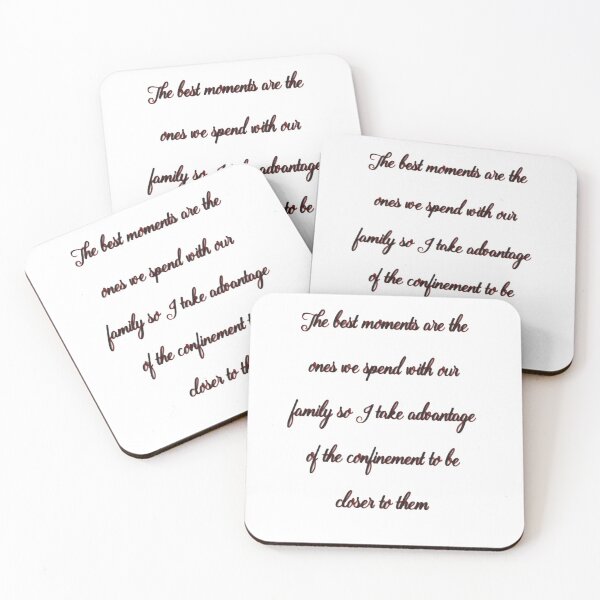 The best moments are the
ones we spend with our
family so I take advantage
to be
The best moments are the
ones we spend with our
family so I take advantage
of the confinement to be
The best moments are the
ones we spend with our
family so I take advantage
of the confinement
closer to
The best moments are the
ones we spend with our
family so I take advantage
of the confinement to be
closer to them